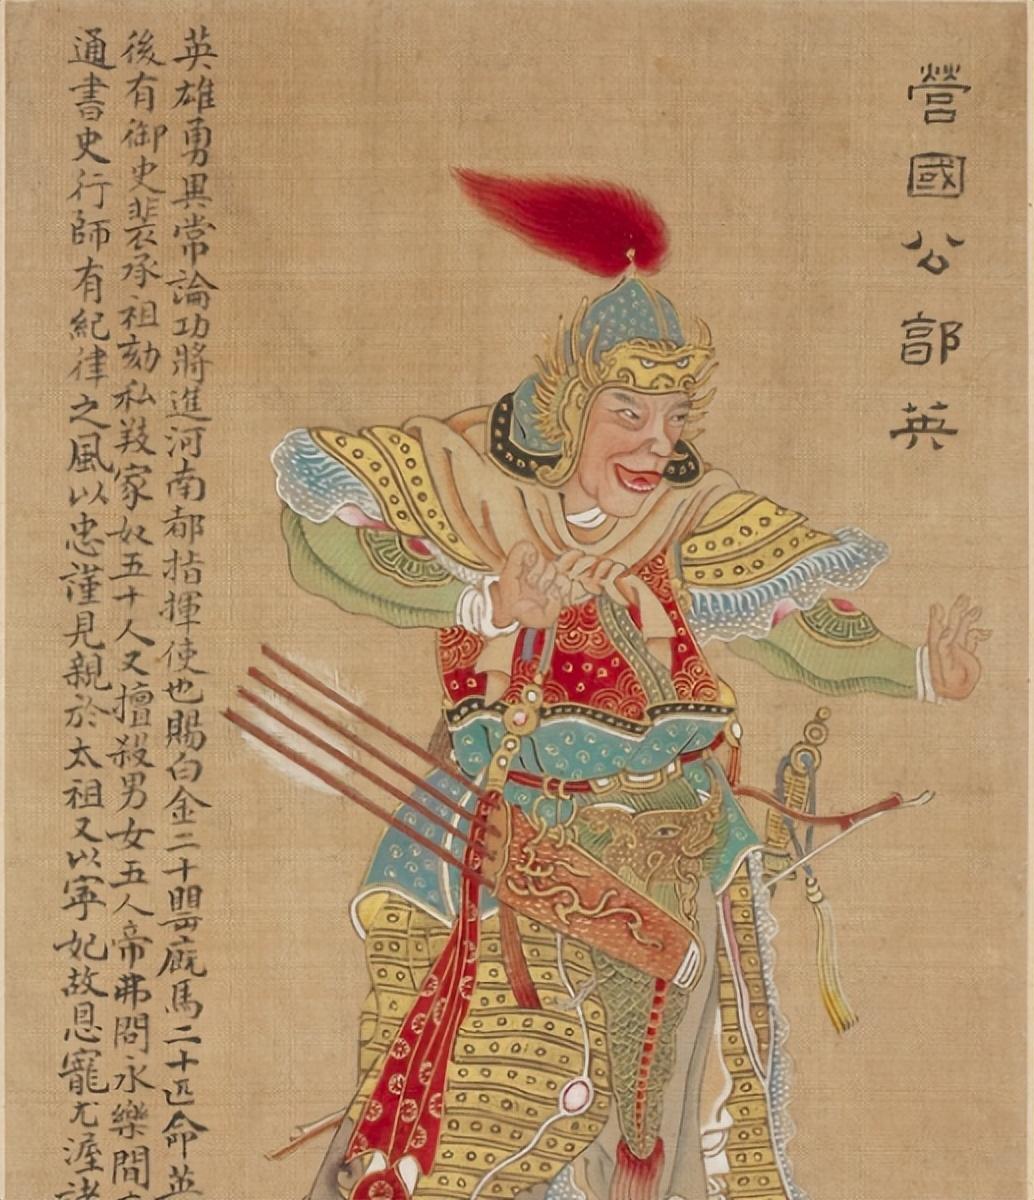 營國公郭英
英雄勇異常論功將進河南都指揮使也賜白金二十罌廐馬二十匹命英
後有御史裴承祖劾私養家奴五十人又擅殺男女五人帝弗問永樂間
通書史行師有紀律之風以忠謹見親於太祖又以寧妃故恩寵尤渥諸